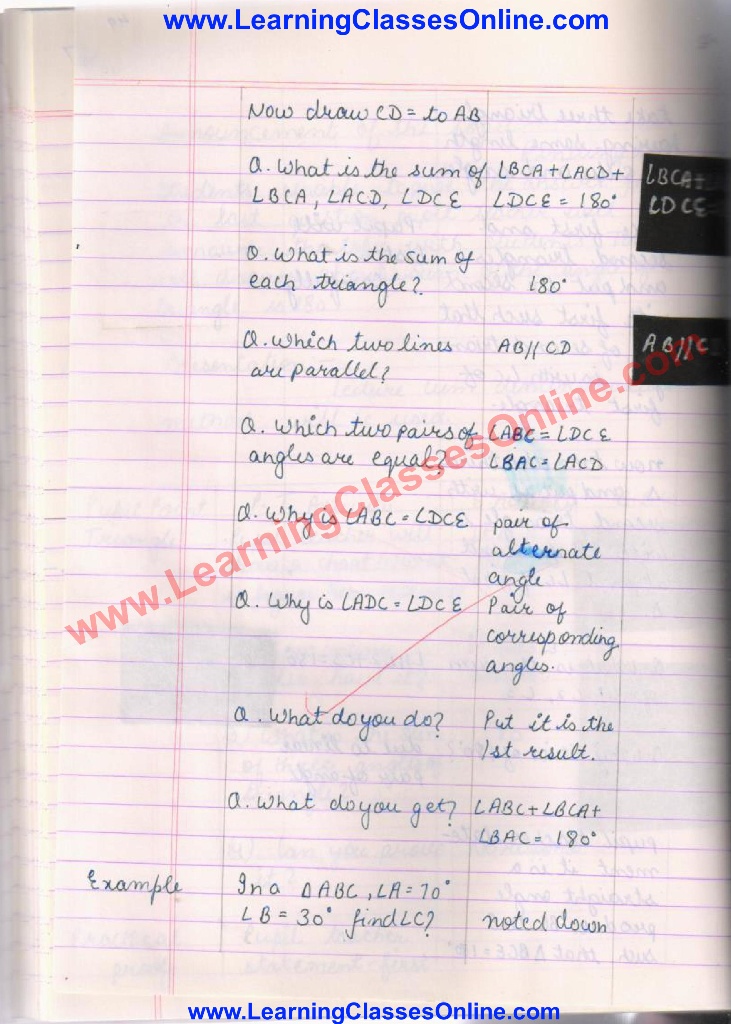 www.LearningClassesOnline.com
Now draw CD = to AB
Q. What is the sum of
∠BCA, ∠ACD, ∠DCE
∠BCA + ∠ACD +
∠DCE = 180°
∠BCA +
∠DCE =
Q. What is the sum of
each triangle?
180°
Q. Which two lines
are parallel?
AB // CD
AB // C
Q. Which two pairs of
angles are equal?
∠ABC = ∠DCE
∠BAC = ∠ACD
Q. Why is ∠ABC = ∠DCE
pair of
alternate
angle
Q. Why is ∠ADC = ∠DCE
Pair of
corresponding
angles.
Q. What do you do?
Put it is the
1st result.
Q. What do you get?
∠ABC + ∠BCA +
∠BAC = 180°
Example
In a △ABC, ∠A = 70°
∠B = 30° find ∠C?
noted down
www.LearningClassesOnline.com
www.LearningClassesOnline.com